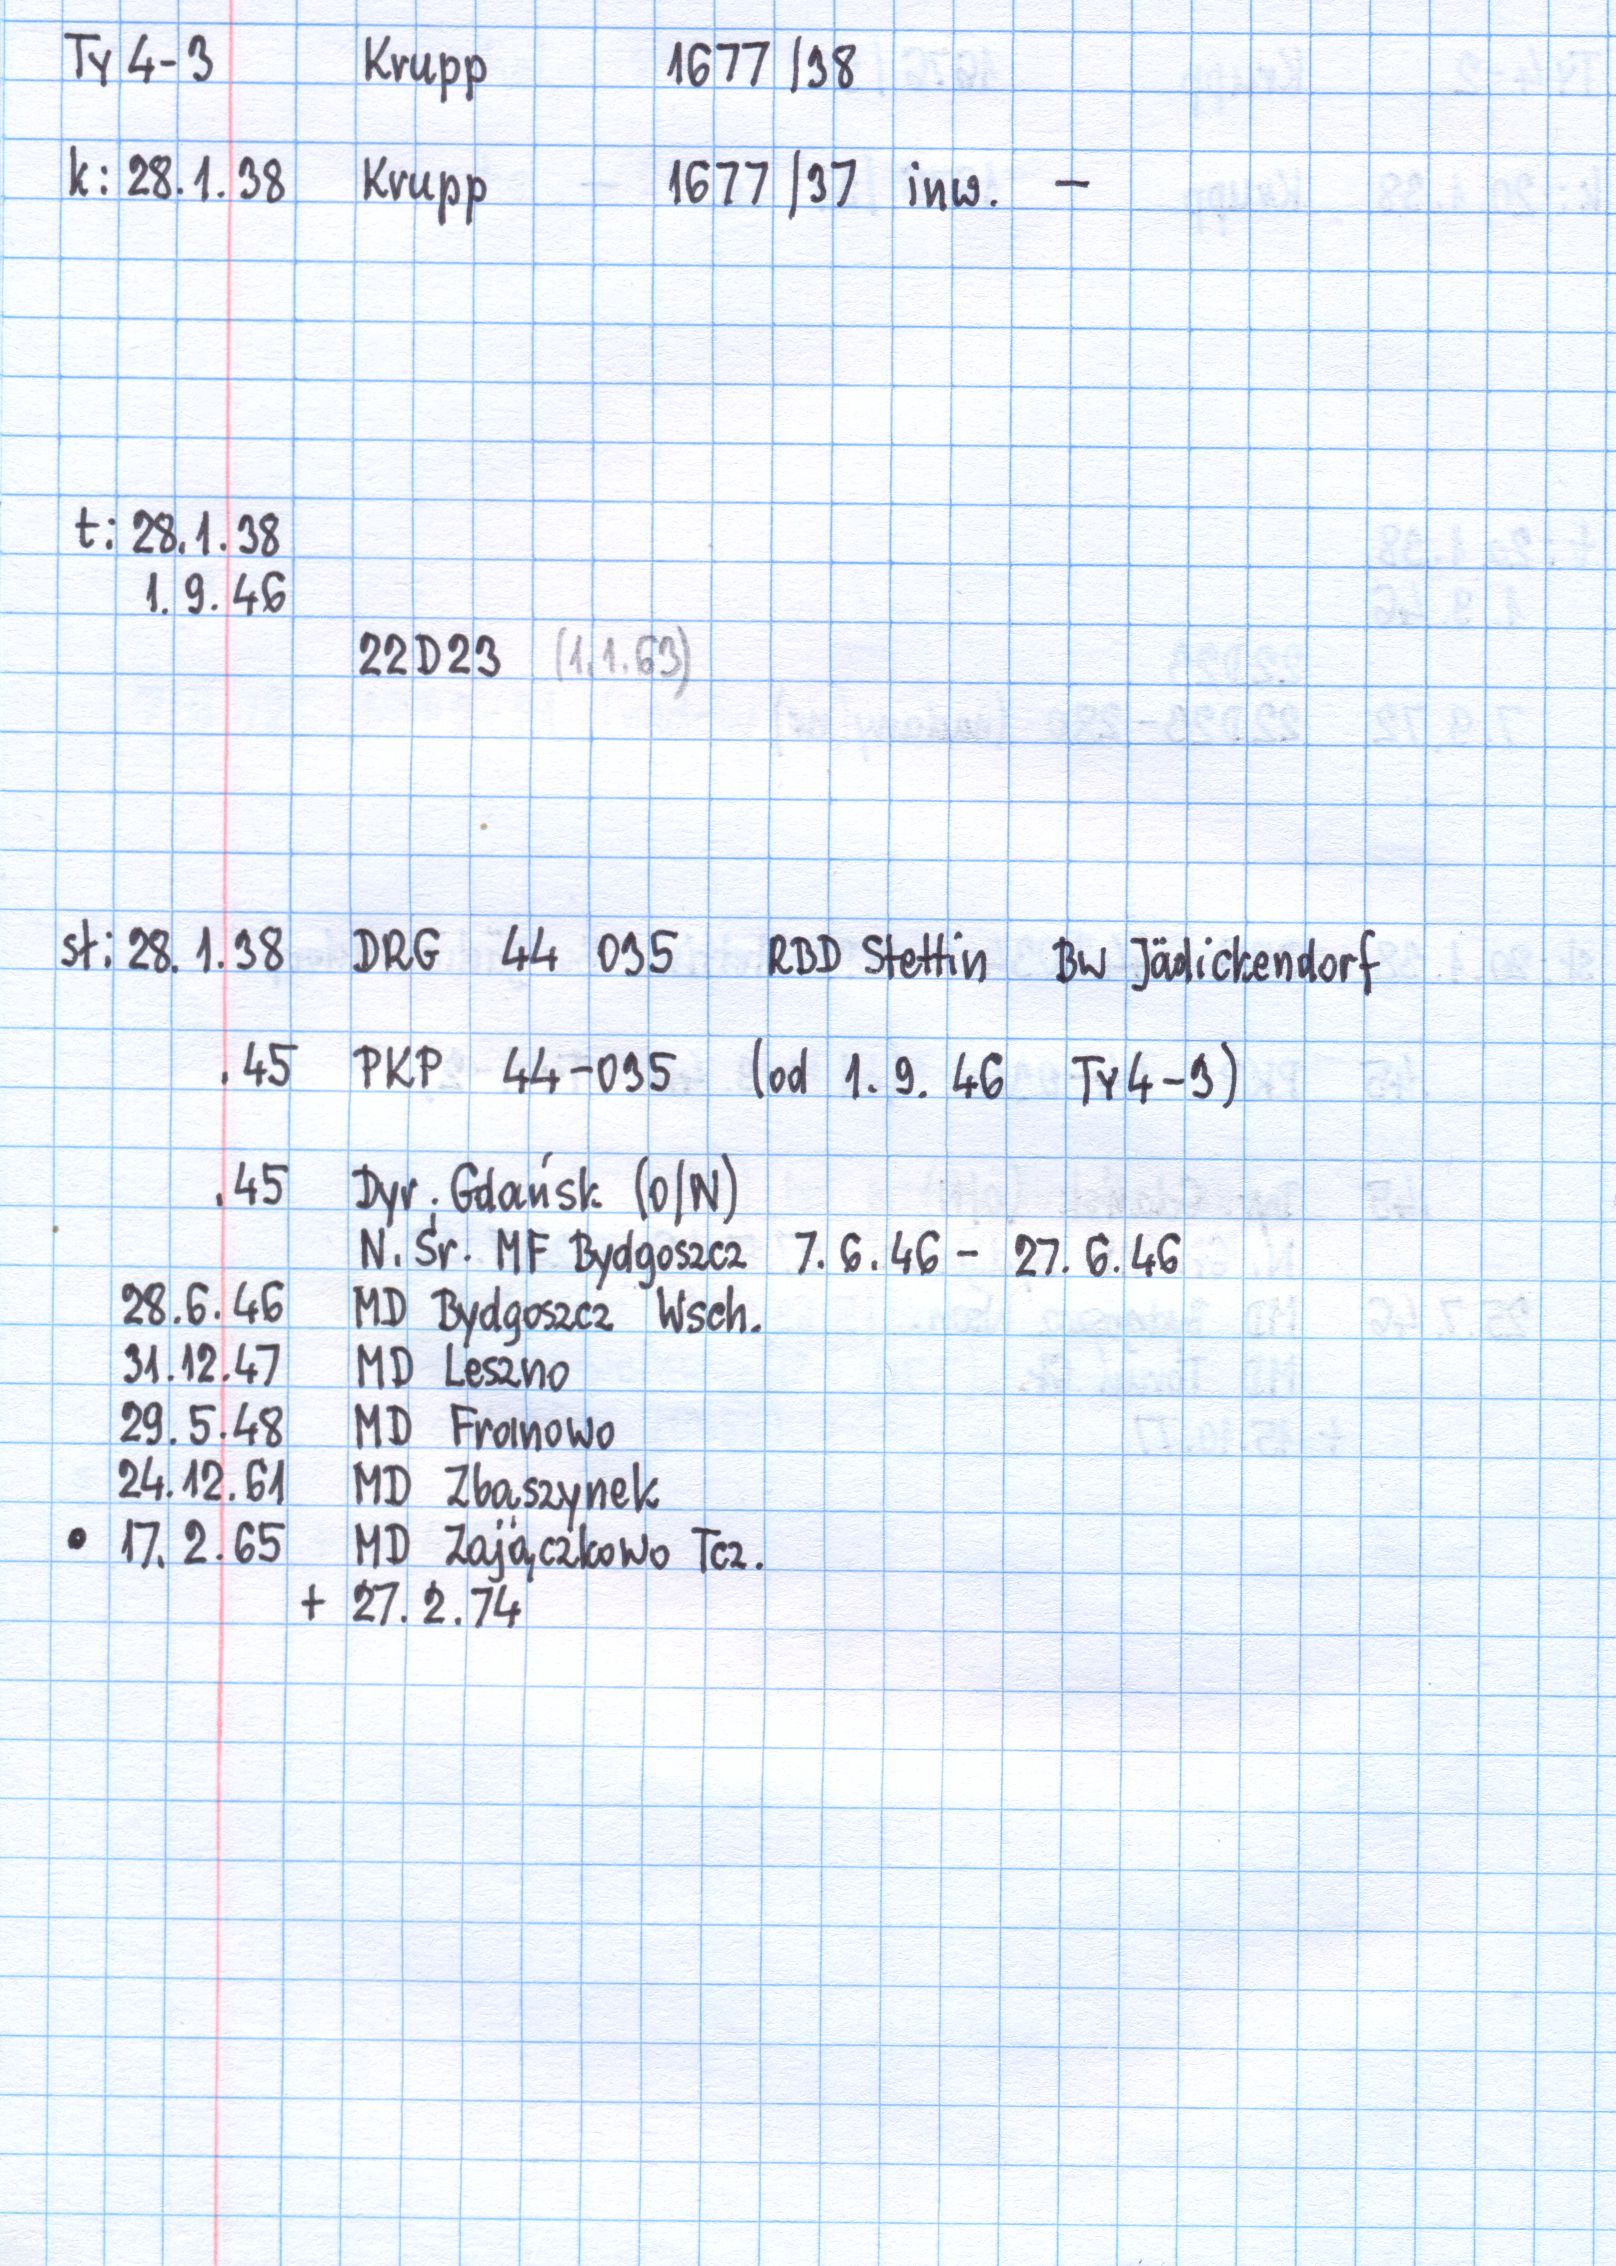 Ty4-3 Krupp 1677/38
k: 28.1.38 Krupp 1677/37 inw. -
t: 28.1.38
1.9.46
22D23 (1.1.63)
st: 28.1.38 DRG 44 035 RBD Stettin Bw Jädickendorf
.45 PKP 44-035 (od 1.9.46 Ty4-3)
.45 Dyr. Gdańsk (O/N)
N. Śr. MF Bydgoszcz 7.6.46 - 27.6.46
28.6.46 MD Bydgoszcz Wsch.
31.12.47 MD Leszno
29.5.48 MD Franowo
24.12.61 MD Zbąszynek
• 17.2.65 MD Zajączkowo Tcz.
+ 27.2.74